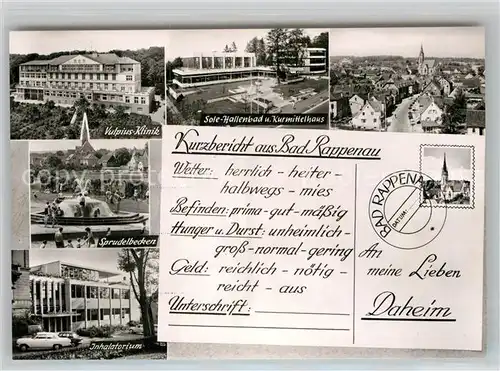 Vulpius-Klinik
Sole-Hallenbad u. Kurmittelhaus
Sprudelbecken
Inhalatorium
Kurzbericht aus Bad Rappenau
Wetter: herrlich - heiter -
halbwegs - mies
Befinden: prima - gut - mäßig
Hunger u. Durst: unheimlich -
groß - normal - gering
Geld: reichlich - nötig -
reicht - aus
Unterschrift:
BAD RAPPENAU
DATUM:
An
meine Lieben
Daheim